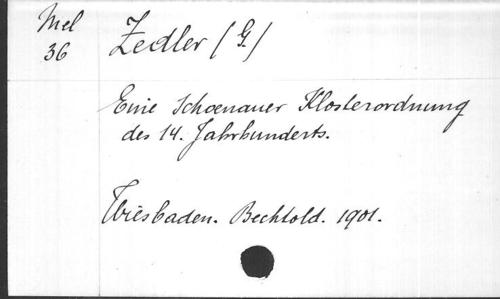 Mel
36
Zedler (G.)
Eine Schoenauer Klosterordnung
des 14. Jahrhunderts.
Wiesbaden. Bechtold. 1901.